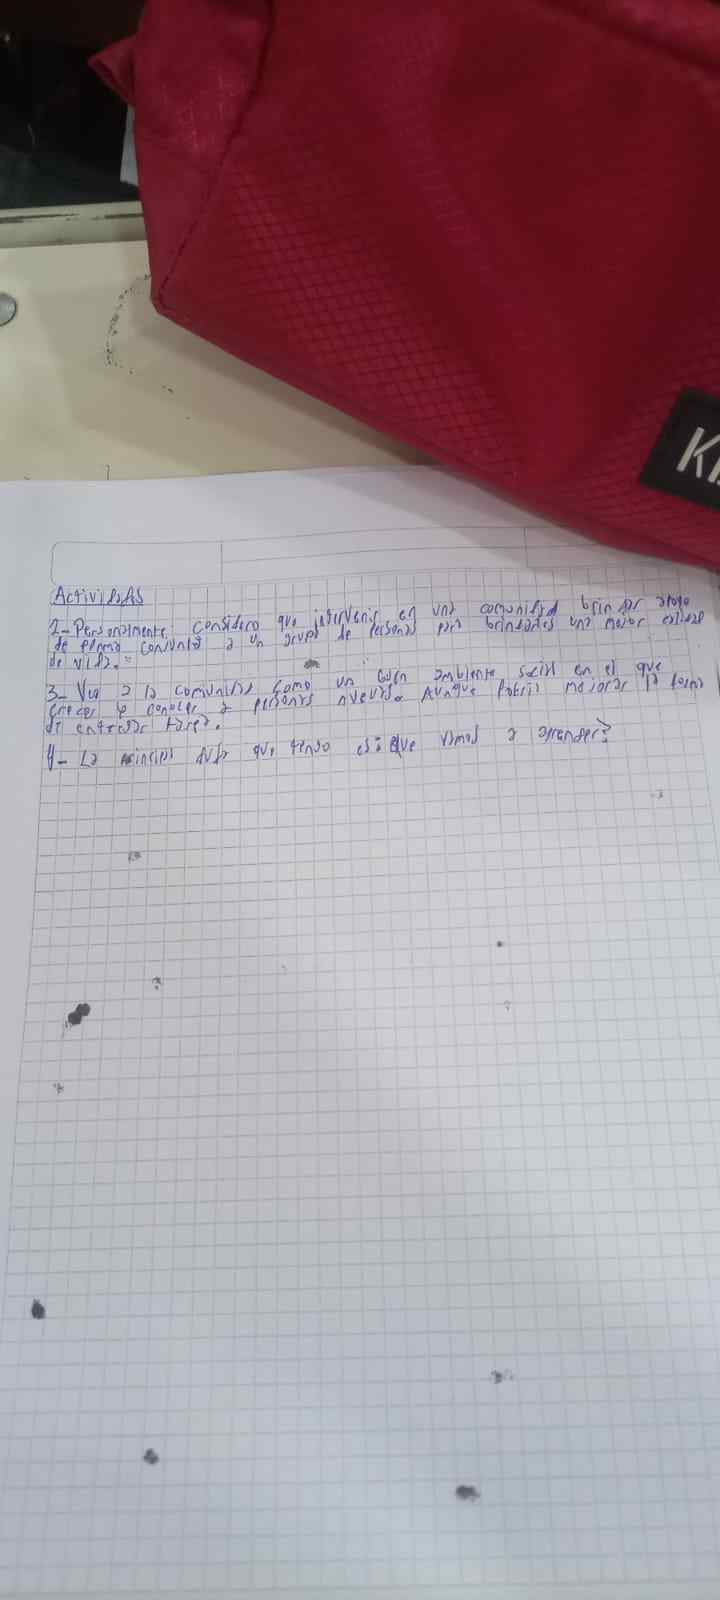 KI
Actividades
2- Personalmente, considero que intervenir en una comunidad brindar apoyo
de forma conjunta a un grupo de personas para brindarles una mejor calidad
de vida.
3- Veo a la comunidad como un buen ambiente social en el que
crecer y conocer a personas nuevas. Aunque podria mejorar la forma
de entregar tarea.
4- La principal duda que tengo es: Que vamos a aprender?